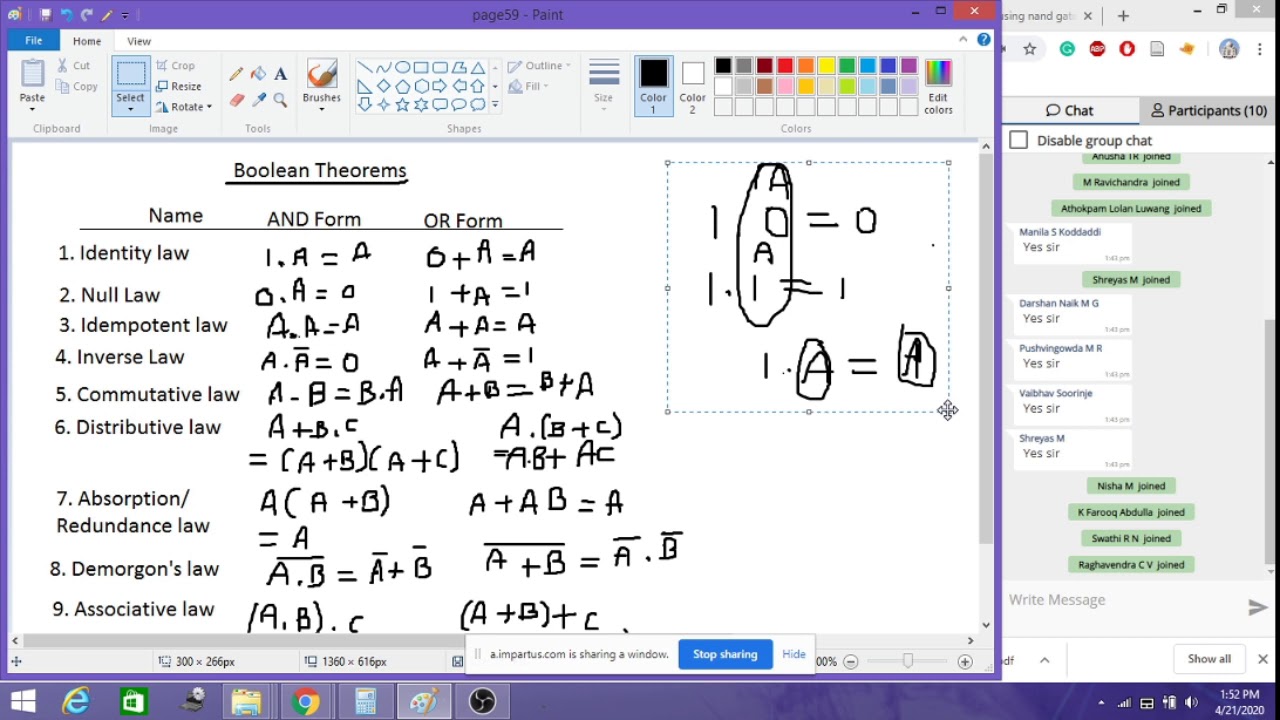 page59 - Paint
using nand gat
File Home View
Paste
Cut
Copy
Clipboard
Select
Crop
Resize
Rotate
Image
Tools
Brushes
Shapes
Outline
Fill
Size
Color 1
Color 2
Edit colors
Colors
Boolean Theorems
Name AND Form OR Form
1. Identity law 1.A = A 0+A=A
2. Null Law 0.A = 0 1+A=1
3. Idempotent law A.A=A A+A=A
4. Inverse Law A.A̅=0 A+A̅=1
5. Commutative law A-B=B.A A+B=B+A
6. Distributive law A+B.C A.(B+C)
=(A+B)(A+C) =A.B+AC
7. Absorption/ A(A+B) A+AB=A
Redundance law
= A
8. Demorgon's law A̅.̅B̅ = A̅+B̅ A̅ ̅+̅ ̅B̅ = A̅.B̅
9. Associative law (A.B).C (A+B)+C
A
1 0 = 0
A
1.1=1
1.A = A
300 × 266px
1360 × 616px
00%
a.impartus.com is sharing a window.
Stop sharing
Hide
ABP
Chat
Participants (10)
Disable group chat
Anusha TR joined
M Ravichandra joined
Athokpam Lolan Luwang joined
Manila S Koddaddi
Yes sir
1:43 pm
Shreyas M joined
Darshan Naik M G
Yes sir
1:43 pm
Pushvingowda M R
Yes sir
1:43 pm
Vaibhav Soorinje
Yes sir
1:43 pm
Shreyas M
Yes sir
1:43 pm
Nisha M joined
K Farooq Abdulla joined
Swathi R N joined
Raghavendra C V joined
Write Message
df
Show all
1:52 PM
4/21/2020